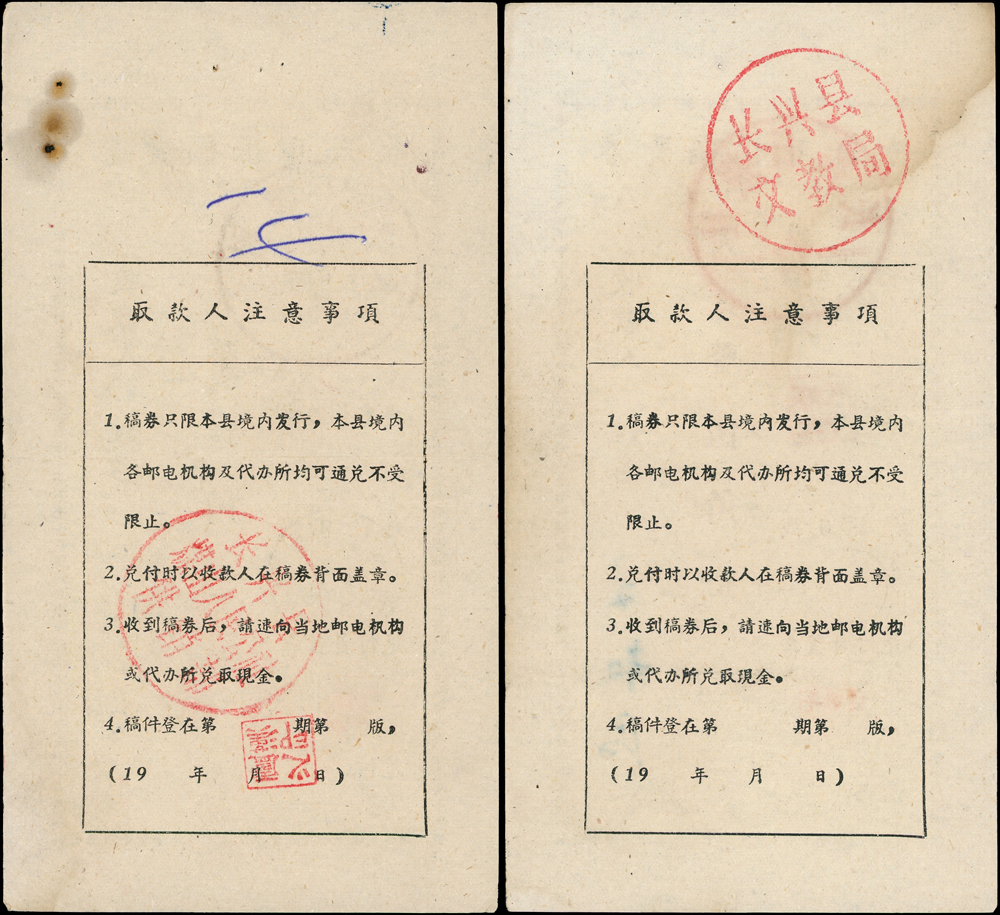 取款人注意事項
1.稿券只限本县境内发行，本县境内
各邮电机构及代办所均可通兑不受
限止。
2.兑付时以收款人在稿券背面盖章。
3.收到稿券后，請速向当地邮电机构
或代办所兑取現金。
4.稿件登在第 期第 版，
(19 年 月 日)
长兴县
文教局
取款人注意事項
1.稿券只限本县境内发行，本县境内
各邮电机构及代办所均可通兑不受
限止。
2.兑付时以收款人在稿券背面盖章。
3.收到稿券后，請速向当地邮电机构
或代办所兑取現金。
4.稿件登在第 期第 版，
(19 年 月 日)